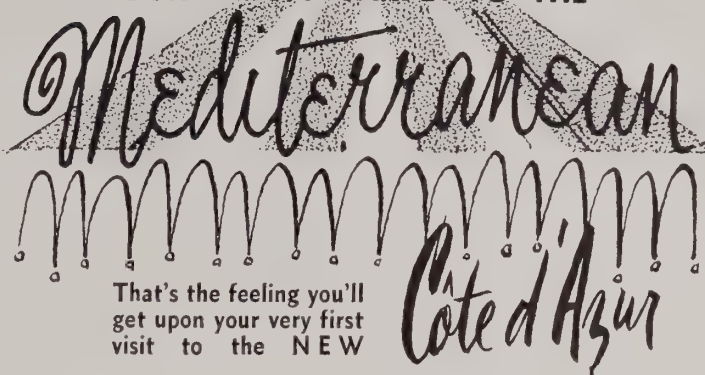 THE
Mediterranean
That's the feeling you'll
get upon your very first
visit to the NEW
Côte d'Azur